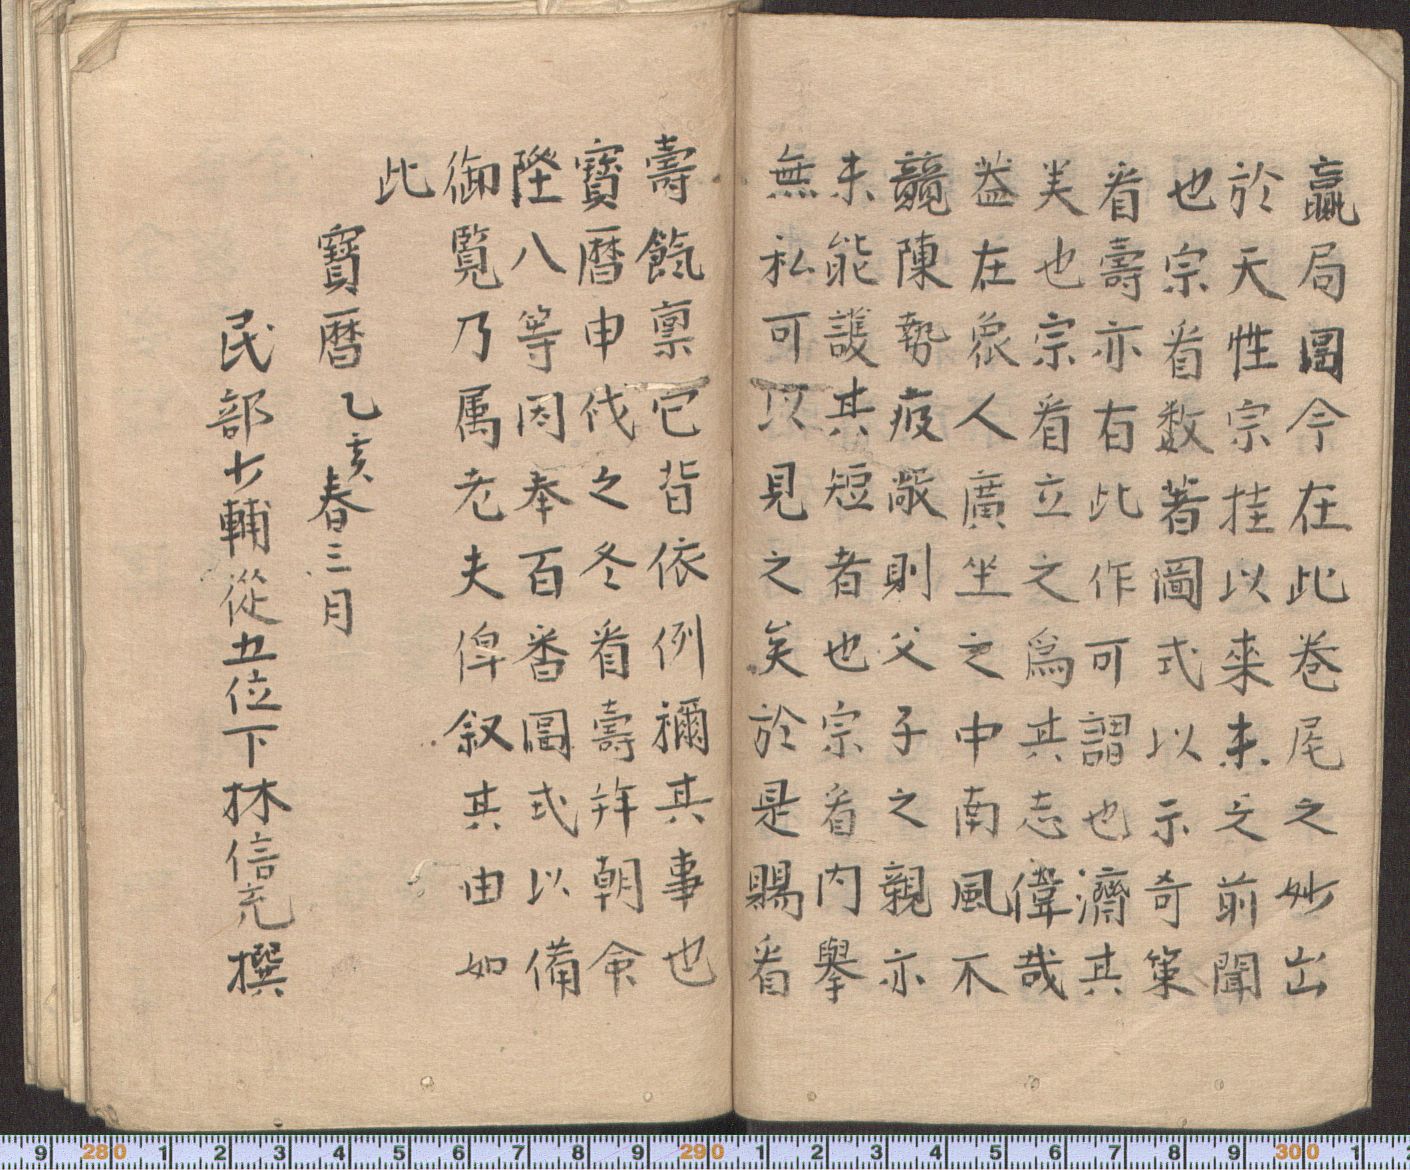 贏局圖今在此卷尾之妙出
於天性宗桂以來未之前聞
也宗看数著圖式以示奇策
看壽亦有此作可謂也濟其
美也宗看立之爲其志偉哉
益在衆人廣坐之中南風不
競陳勢疲敝則父子之親亦
未能護其短者也宗看内擧
無私可以見之矣於是賜看
壽餼稟它皆依例禰其事也
寶暦申伐之冬看壽拜朝命
陞八等因奉百番圖式以備
御覧乃属老夫俾叙其由如
此
寶暦乙亥春三月
民部少輔從五位下林信充撰
9 280 1 2 3 4 5 6 7 8 9 290 1 2 3 4 5 6 7 8 9 300 1